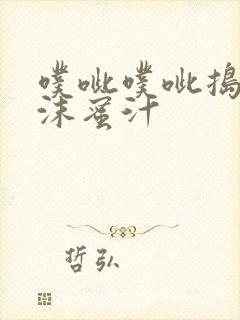 噗呲噗呲捣
沫蜜汁
哲弘